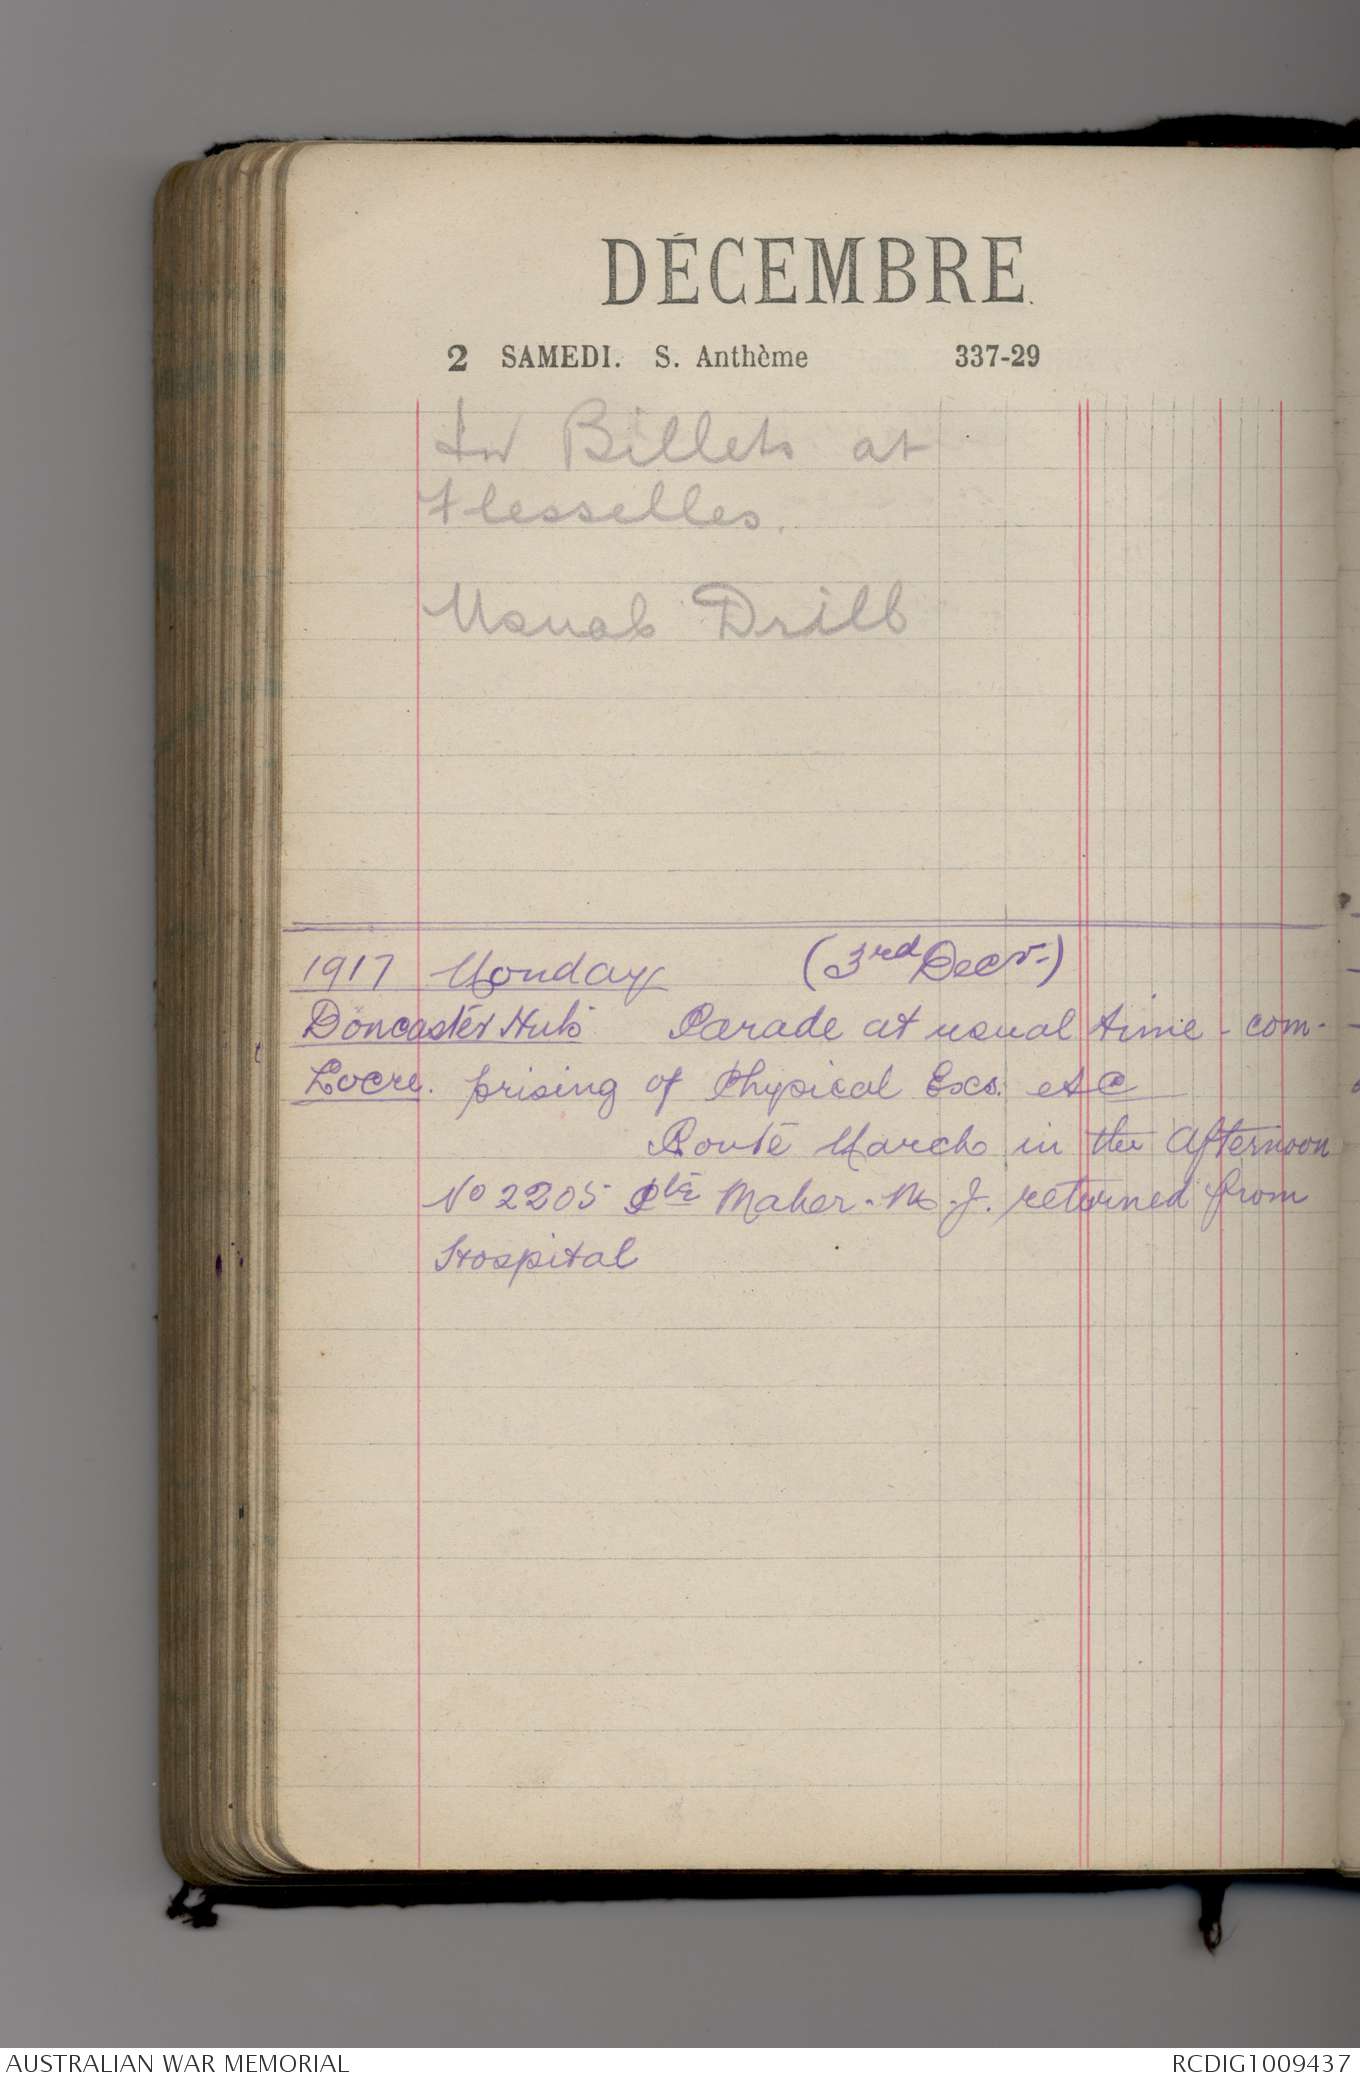 DÉCEMBRE
2 SAMEDI. S. Anthème 337-29
In Billets at
Flesselles.
Usual Drill
1917 Monday (3rd Decr.)
Doncaster Huts Parade at usual time - com-
Locre. prising of Physical Exs. etc
Route March in the Afternoon
No 2205 Pte Maher. M. J. returned from
Hospital
AUSTRALIAN WAR MEMORIAL RCDIG1009437